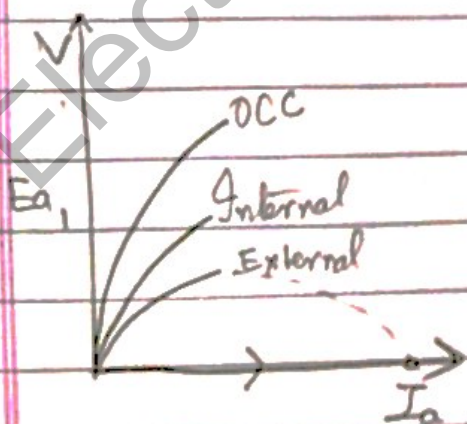 Elect
V
OCC
Ea,
Internal
External
Ia